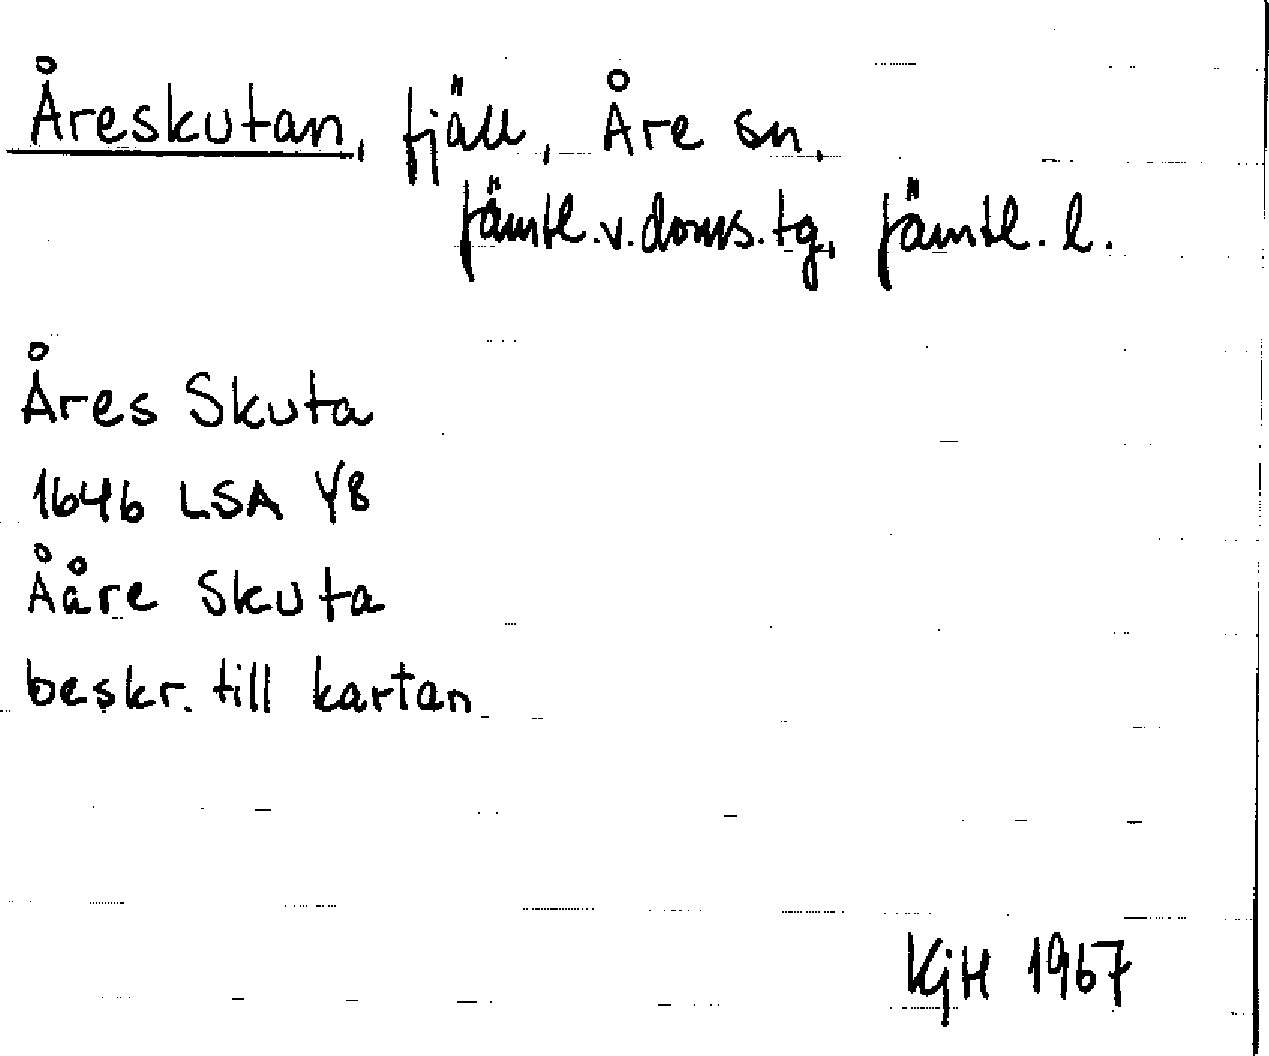 Åreskutan, fjäll, Åre sn,
Jämtl. v. doms. tg, Jämtl. l.
Åres Skuta
1646 LSA Y8
Ååre Skuta
beskr. till kartan
KGH 1967